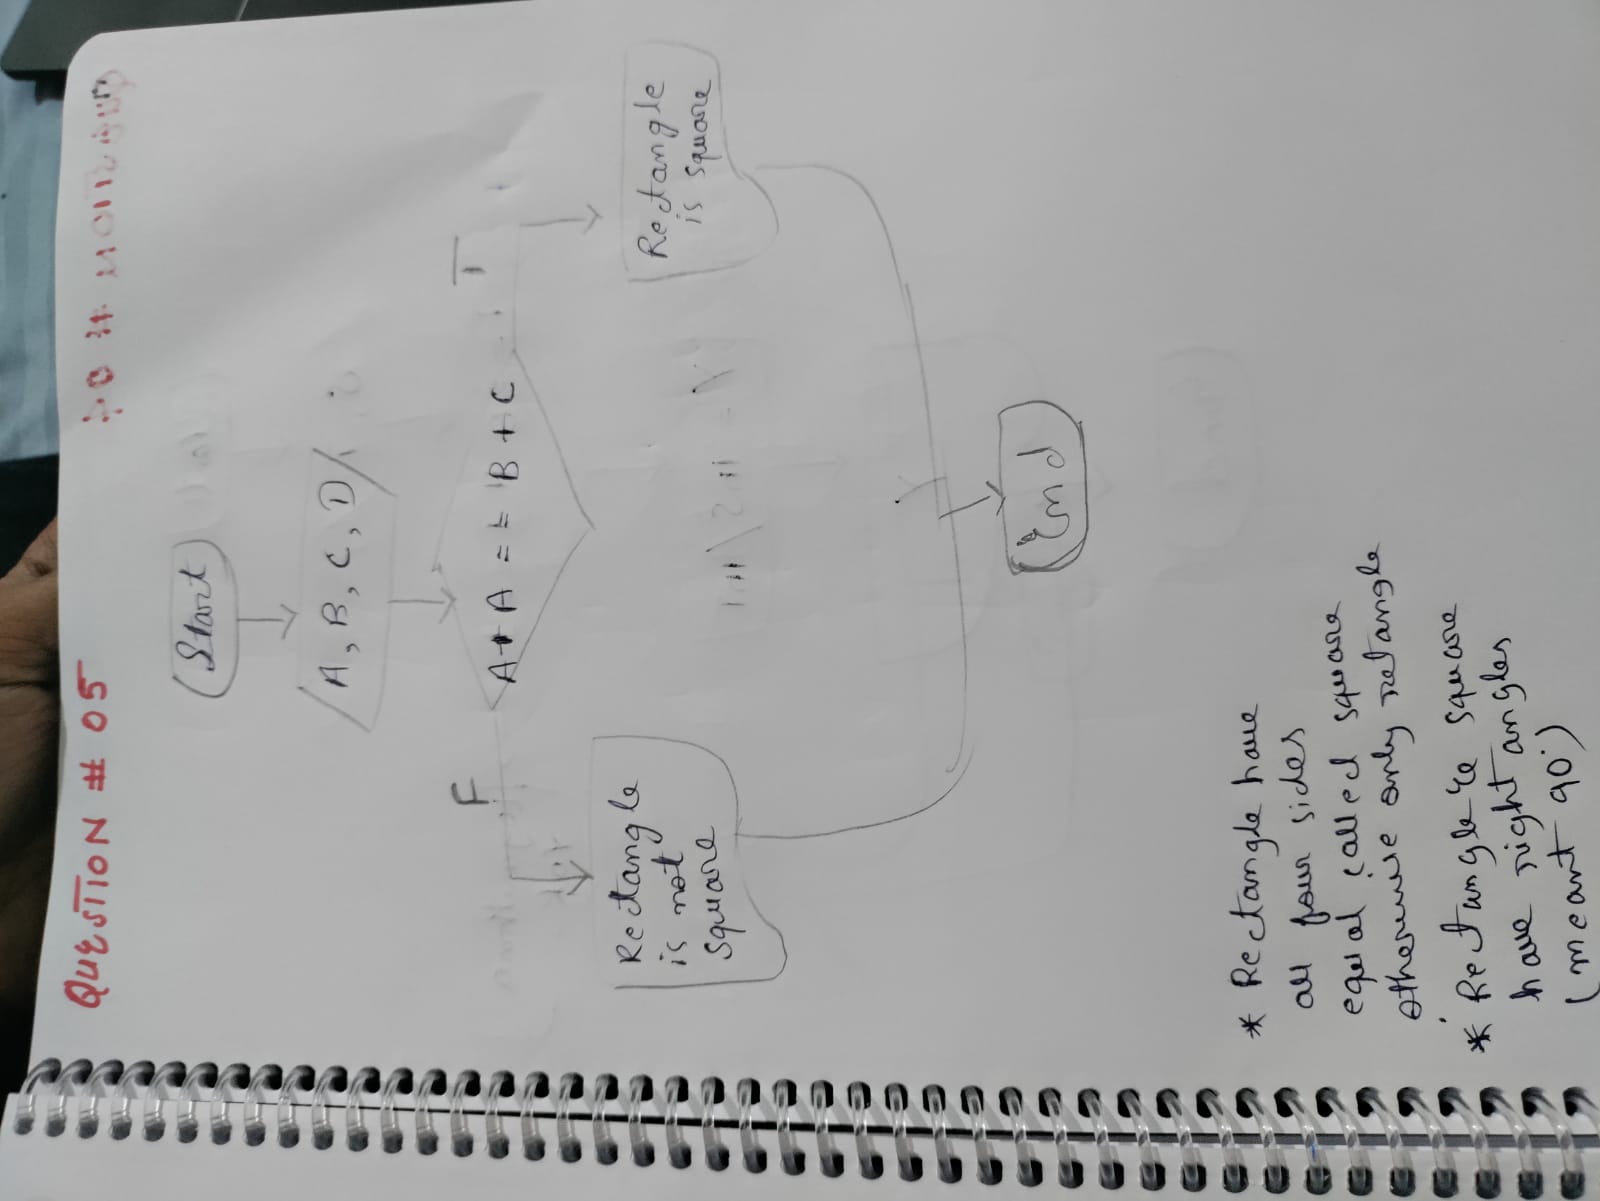 QUESTION # 05
Start
A, B, C, D
A+A == B+C
F
T
Rectangle
is not
square
Rectangle
is square
End
* Rectangle have
all four sides
equal called square
otherwise only retangle
* Rectangle &
square
have right angles
(meant 90°)